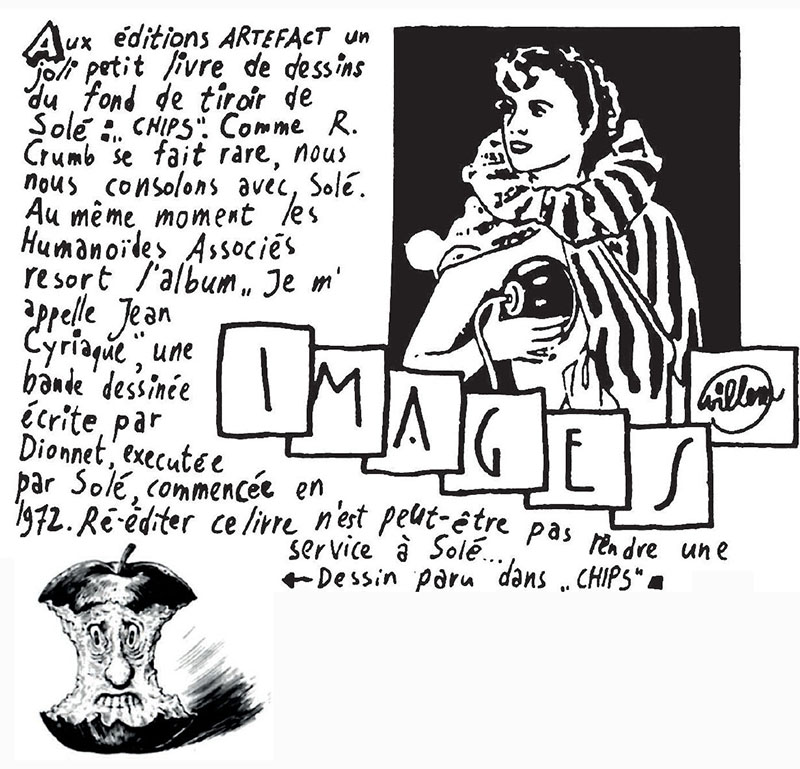 Aux éditions ARTEFACT un
joli petit livre de dessins
du fond de tiroir de
Solé : „CHIPS". Comme R.
Crumb se fait rare, nous
nous consolons avec Solé.
Au même moment les
Humanoïdes Associés
resort l'album „Je m'
appelle Jean
Cyriaque", une
bande dessinée
écrite par
Dionnet, executée
par Solé, commencée en
1972. Ré-éditer ce livre n'est peut-être pas rendre une
service à Solé...
←Dessin paru dans „CHIPS"
IMAGES
willem